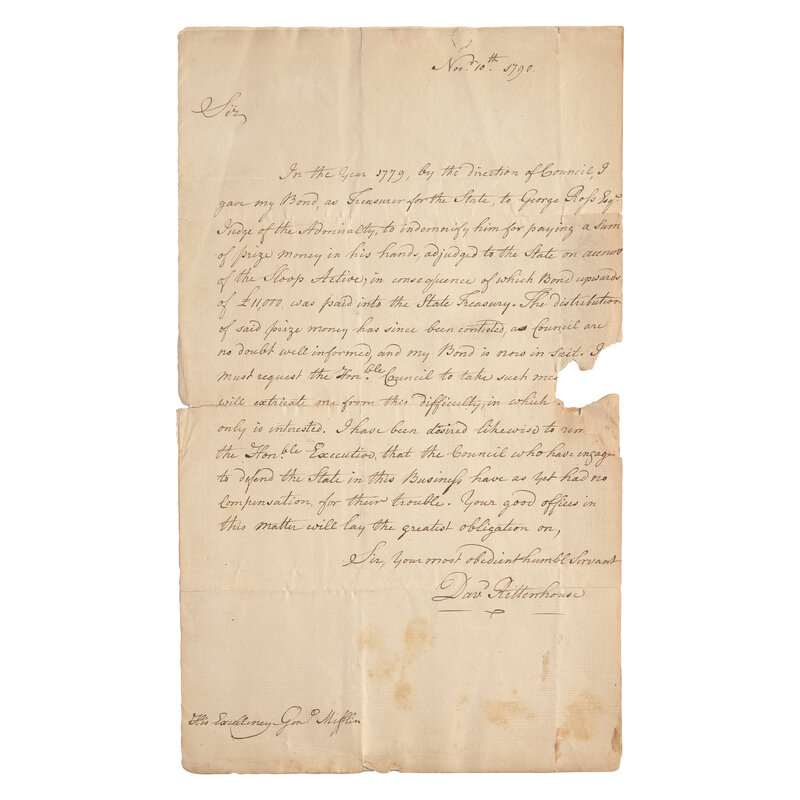 Nov.r 10th. 1790.
Sir
In the Year 1779, by the direction of Council, I
gave my Bond, as Treasurer for the State, to George Ross Esq.r
Judge of the Admiralty, to indemnify him for paying a sum
of prize money in his hands, adjudged to the State on account
of the Sloop Active; in consequence of which Bond upwards
of £11,000, was paid into the State Treasury. The distribution
of said prize money has since been contested, as Council are
no doubt well informed, and my Bond is now in suit. I
must request the Hon.ble Council to take such me
will extricate me from this difficulty, in which
only is interested. I have been desired likewise to rem
the Hon.ble Executive, that the Council who have engage
to defend the State in this Business have as yet had no
Compensation for their trouble. Your good offices in
this matter will lay the greatest obligation on,
Sir, Your most obedient humble Servant
Dav.d Rittenhouse
His Excellency Gen.l Mifflin